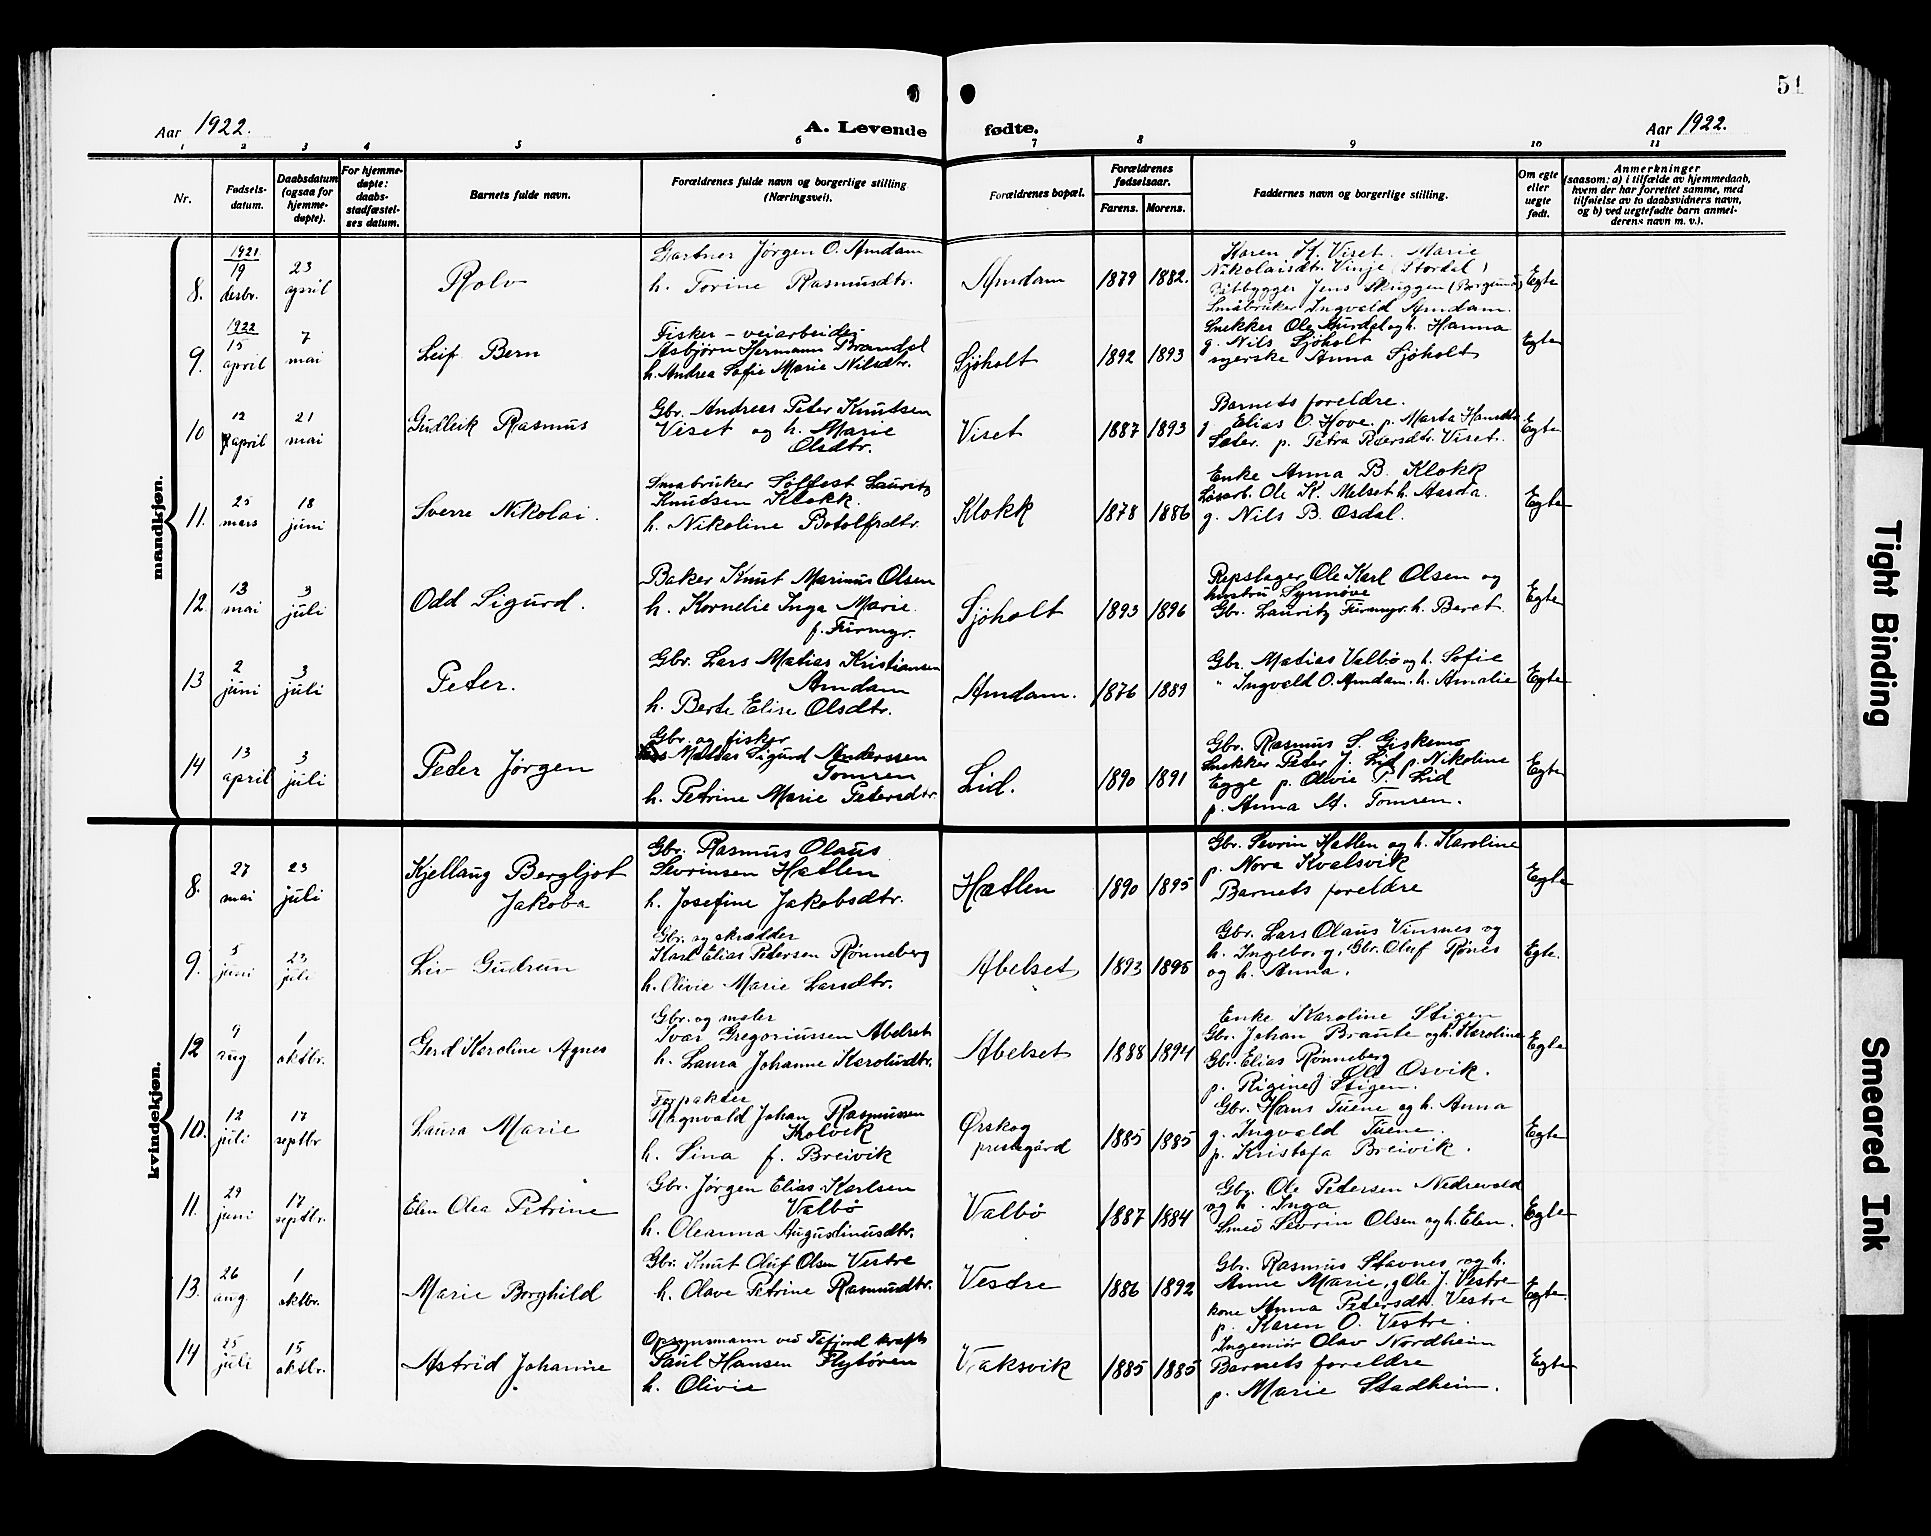 51
Aar 1922.
A. Levende fødte.
Aar 1922.
1 2 3 4 5 6 7 8 9 10 11
Nr.
Fødsels-
datum.
Daabsdatum
(ogsaa for
hjemme-
døpte).
For hjemme-
døpte:
daabs-
stadfæstel-
ses datum.
Barnets fulde navn.
Forældrenes fulde navn og borgerlige stilling
(Næringsvei).
Forældrenes bopæl.
Forældrenes
fødselsaar.
Farens. Morens.
Faddernes navn og borgerlige stilling.
Om egte
eller
uegte
født.
Anmerkninger
(saasom: a) i tilfælde av hjemmedaab,
hvem der har forrettet samme, med
tilføielse av to daabsvidners navn,
og b) ved uegtefødte barn anmel-
derens navn m. v.).
mandkjøn.
8.
1921
19
desbr.
23
april
Rolv
Gartner Jørgen O. Amdam
h. Torine Rasmusdtr.
Amdam
1879 1882.
Karen K. Viset. Marie
Nikolaisdtr. Vinje (Stordal)
Båtbygger Jens Skuggen (Borgund)
Småbruker Ingvald Amdam.
Egte
9.
1922
15
april
7
mai
Leif Bern
Fisker - veiarbeider
Asbjørn Hermann Brandal
h. Andrea Sofie Marie Nilsdtr.
Sjøholt
1892 1893
Snekker Ole Aurdal og h. Hanna
g. Nils Sjøholt
syerske Anna Sjøholt
Egte
10
12
april
21
mai
Gudleik Rasmus
Gbr. Andreas Peter Knutsen
Viset og h. Marie
Olsdtr.
Viset
1887 1893
Barnets foreldre.
g Elias O. Hove. p. Marta Hansdtr
Sæter. p. Petra Peersdtr. Viset.
Egte
11.
25
mars
18
juni
Sverre Nikolai.
Småbruker Søffest Lauritz
Knudsen Klokk.
h. Nikoline Botolfsdtr.
Klokk
1878 1886
Enke Anna B. Klokk
Løsarb. Ole K. Melset h. Aasta.
g. Nils B. Osdal.
Egte
12.
13
mai
3
juli
Odd Sigurd.
Baker Knut Marinus Olsen
h. Kornelie Inga Marie
f. Furmyr.
Sjøholt
1893 1896
Repslager Ole Karl Olsen og
hustru Synnøve
Gbr. Lauritz Furmyr. h. Beret
Egte
13
2
juni
3
juli
Peter.
Gbr. Lars Matias Kristiansen
Amdam
h. Berte Elise Olsdtr.
Amdam.
1876 1889
Gbr. Matias Valbø og h. Sofie
" Ingvald O. Amdam. h. Amalie
Egte
14
13
april
3
juli
Peder Jørgen
Gbr. og fisker
Mattias Sigurd Anderssen
Tomren
h. Petrine Marie Petersdtr.
Lid.
1890 1891
Gbr. Rasmus S. Giskemo
Snekker Peter J. Lid p. Nikoline
Egge p. Olivie P. Lid
p. Anna A. Tomren.
Egte
kvindekjøn.
8.
27
mai
23
juli
Kjellaug Bergljot
Jakoba
Gbr. Rasmus Olaus
Sevrinsen Hatlen
h. Josefine Jakobsdtr.
Hatlen
1890 1895
Gbr. Sevrin Hatlen og h. Karoline
p. Nora Kvalsvik
Barnets foreldre
Egte
9.
5
juni
23
juli
Liv Gudrun
Gbr. og skrædder
Karl Elias Petersen Rønneberg
h. Olivie Marie Larsdtr.
Abelset
1893 1895
Gbr. Lars Olaus Vinsnes og
h. Ingeborg, Gbr. Oluf Rønes
og h. Anna.
Egte.
12
9
aug
1
oktbr.
Gerd Karoline Agnes
Gbr. og maler
Ivar Gregoriussen Abelset
h. Laura Johanne Karolusdtr.
Abelset
1888 1894
Enke Karoline Stigen
Gbr. Johan Braute og h. Karoline
Gbr. Elias Rønneberg
g. Ole Osvik.
p. Rigine Stigen.
Egte
10.
12
juli
17
septbr
Laura Marie
Forpakter
Ragnvald Johan Rasmussen
Kolvik
h. Sina f. Breivik
Ørskog
prestegård
1885 1885
Gbr. Hans Tuene og h. Anna
g. Ingvald Tuene.
p. Kristofa Breivik.
Egte
11.
29
juni
17
septbr.
Elen Olea Petrine
Gbr. Jørgen Elias Karlsen
Valbø
h. Oleanna Augustinusdtr.
Valbø
1887 1884
Gbr. Ole Petersen Nedrevold
og h. Inga
Smed Sevrin Olsen og h. Elen.
Egte
13.
26
aug.
1
oktbr.
Marie Borghild
Gbr. Knut Oluf Olsen Vestre
h. Olave Petrine Rasmusdtr.
Vestre
1886 1892
Gbr. Rasmus Stavnes og h.
Anne Marie, g Ole J. Vestre
kone Anna Petersdtr. Vestre
p. Karen O. Vestre.
Egte.
14
25
juli
15
oktbr.
Astrid Johanne
Opsynsmann ved Tafjord kraft
Paul Hansen Flytøren
h. Olivie
Vaksvik
1885 1885
Ingeniør Olav Nordheim
Barnets foreldre
p. Marie Stadheim.
Egte
Tight Binding
Smeared Ink